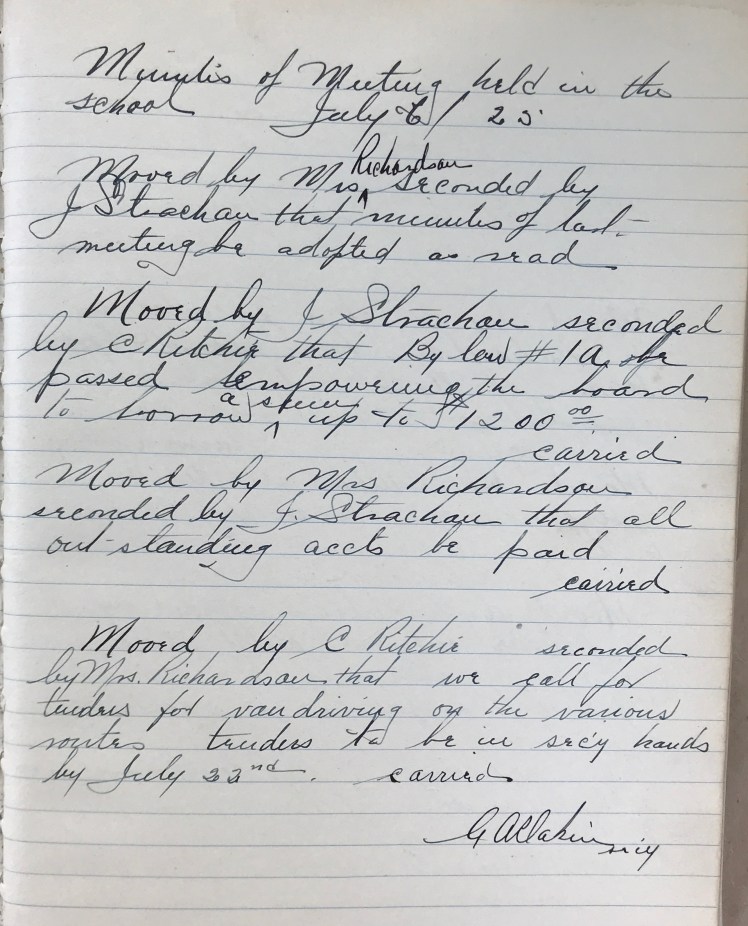 Minutes of Meeting held in the
school July 6/ 25
Moved by Mrs Richardson seconded by
J Strachan that minutes of last
meeting be adopted as read
Moved by J Strachan seconded
by C Ritchie that By law # 1A be
passed empowering the board
to borrow a sum up to $1200.00
carried
Moved by Mrs Richardson
seconded by J. Strachan that all
out-standing accts be paid
carried
Moved by C Ritchie seconded
by Mrs. Richardson that we call for
tenders for van driving on the various
routes tenders to be in sec'y hands
by July 22nd. carried
secy